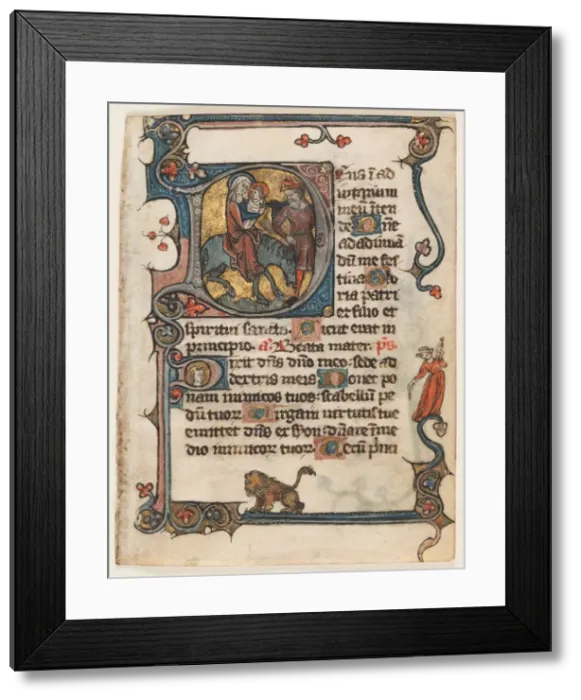 Deus ī ad
iutorium
meū inten
de Dne
ad adiuuā
dū me fes
tina Glo
ria patri
et filio et
spiritui sancto. Sicut erat in
principio. a. Beata mater. ps.
Dixit dns dno meo: sede ad
dextris meis Donec po
nam inimicos tuos: scabellum pe
dū tuor Virgam uirtutis tue
emittet dns ex syon: dnare ī me
dio inimicor tuor Tecū